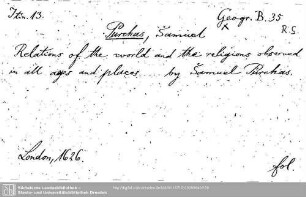 Itin. 13.
Geogr. B. 35
R.S.
Purchas, Samuel
Relations of the world and the religions observed
in all ages and places. by Samuel Purchas.
London, 1626.
fol.